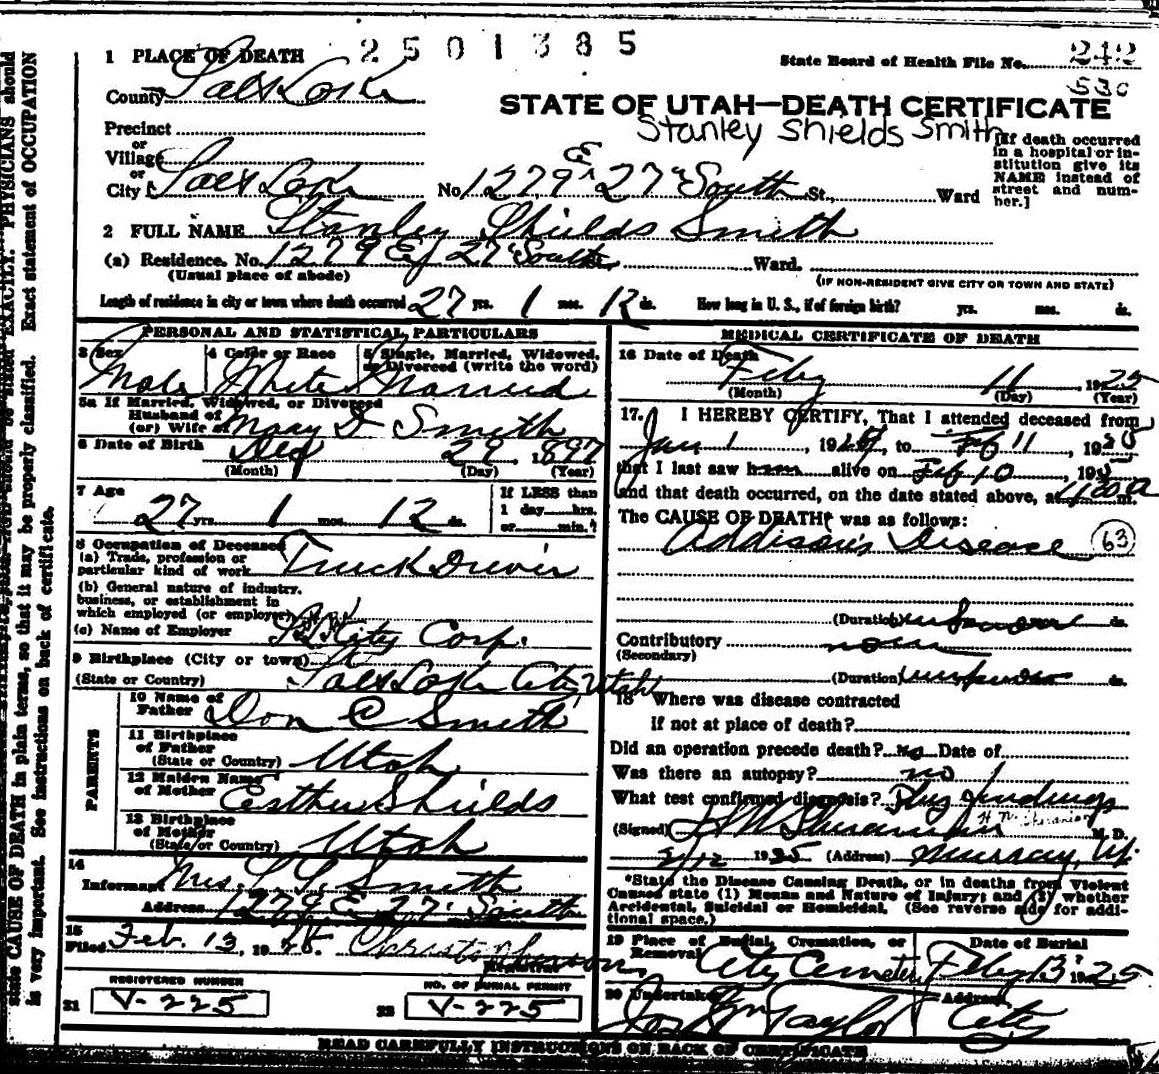 2501385
1 PLACE OF DEATH
State Board of Health File No. 242
530
County Salt Lake
STATE OF UTAH—DEATH CERTIFICATE
Stanley Shields Smith
Precinct
or
Village
or
City Salt Lake No. 1279 E 27" South St., Ward
[If death occurred
in a hospital or in-
stitution give its
NAME instead of
street and num-
ber.]
2 FULL NAME Stanley Shields Smith
(a) Residence. No. 1279 E 27" South Ward.
(Usual place of abode)
(IF NON-RESIDENT GIVE CITY OR TOWN AND STATE)
Length of residence in city or town where death occurred 27 yrs. 1 mos. 12 ds. How long in U. S., if of foreign birth? yrs. mos. ds.
PERSONAL AND STATISTICAL PARTICULARS
3 Sex 4 Color or Race 5 Single, Married, Widowed,
or Divorced (write the word)
Male White Married
5a If Married, Widowed, or Divorced
Husband of
(or) Wife of Mary Smith
6 Date of Birth Dec 29, 1897
(Month) (Day) (Year)
7 Age
27 yrs. 1 mos. 12 ds.
If LESS than
1 day hrs.
or min.?
8 Occupation of Deceased
(a) Trade, profession or
particular kind of work Truck Driver
(b) General nature of industry,
business, or establishment in
which employed (or employer)
(c) Name of Employer City Corp.
9 Birthplace (City or town)
(State or Country) Salt Lake City Utah
PARENTS
10 Name of
Father Don C Smith
11 Birthplace
of Father
(State or Country) Utah
12 Maiden Name
of Mother Esther Shields
13 Birthplace
of Mother
(State or Country) Utah
14
Informant Mrs. Smith
Address 1279 E 27" South
15
Filed Feb. 13, 1925 Christopherson
Registrar
REGISTERED NUMBER
21 V-225
NO. OF BURIAL PERMIT
22 V-225
MEDICAL CERTIFICATE OF DEATH
16 Date of Death
Feby 11, 1925
(Month) (Day) (Year)
17. I HEREBY CERTIFY, That I attended deceased from
Jan 1, 192 to Feb 11, 1925
that I last saw him alive on Feb 10, 1925
and that death occurred, on the date stated above, at m.
The CAUSE OF DEATH* was as follows:
Addison's Disease 63
(Duration) ds.
Contributory none
(Secondary)
(Duration) ds.
18 Where was disease contracted
if not at place of death?
Did an operation precede death? No Date of
Was there an autopsy? no
What test confirmed diagnosis? Phys findings
(Signed) M. D.
2/12 1925 (Address) Murray, Ut.
*State the Disease Causing Death, or in deaths from Violent
Causes state (1) Means and Nature of Injury; and (2) whether
Accidental, Suicidal or Homicidal. (See reverse side for addi-
tional space.)
19 Place of Burial, Cremation, or
Removal City Cemetery
Date of Burial
Feby 13 1925
20 Undertaker Address
Jos Wm Taylor City
READ CAREFULLY INSTRUCTIONS ON BACK OF CERTIFICATE
EXACTLY. PHYSICIANS should
state CAUSE OF DEATH in plain terms, so that it may be properly classified. Exact statement of OCCUPATION
is very important. See instructions on back of certificate.